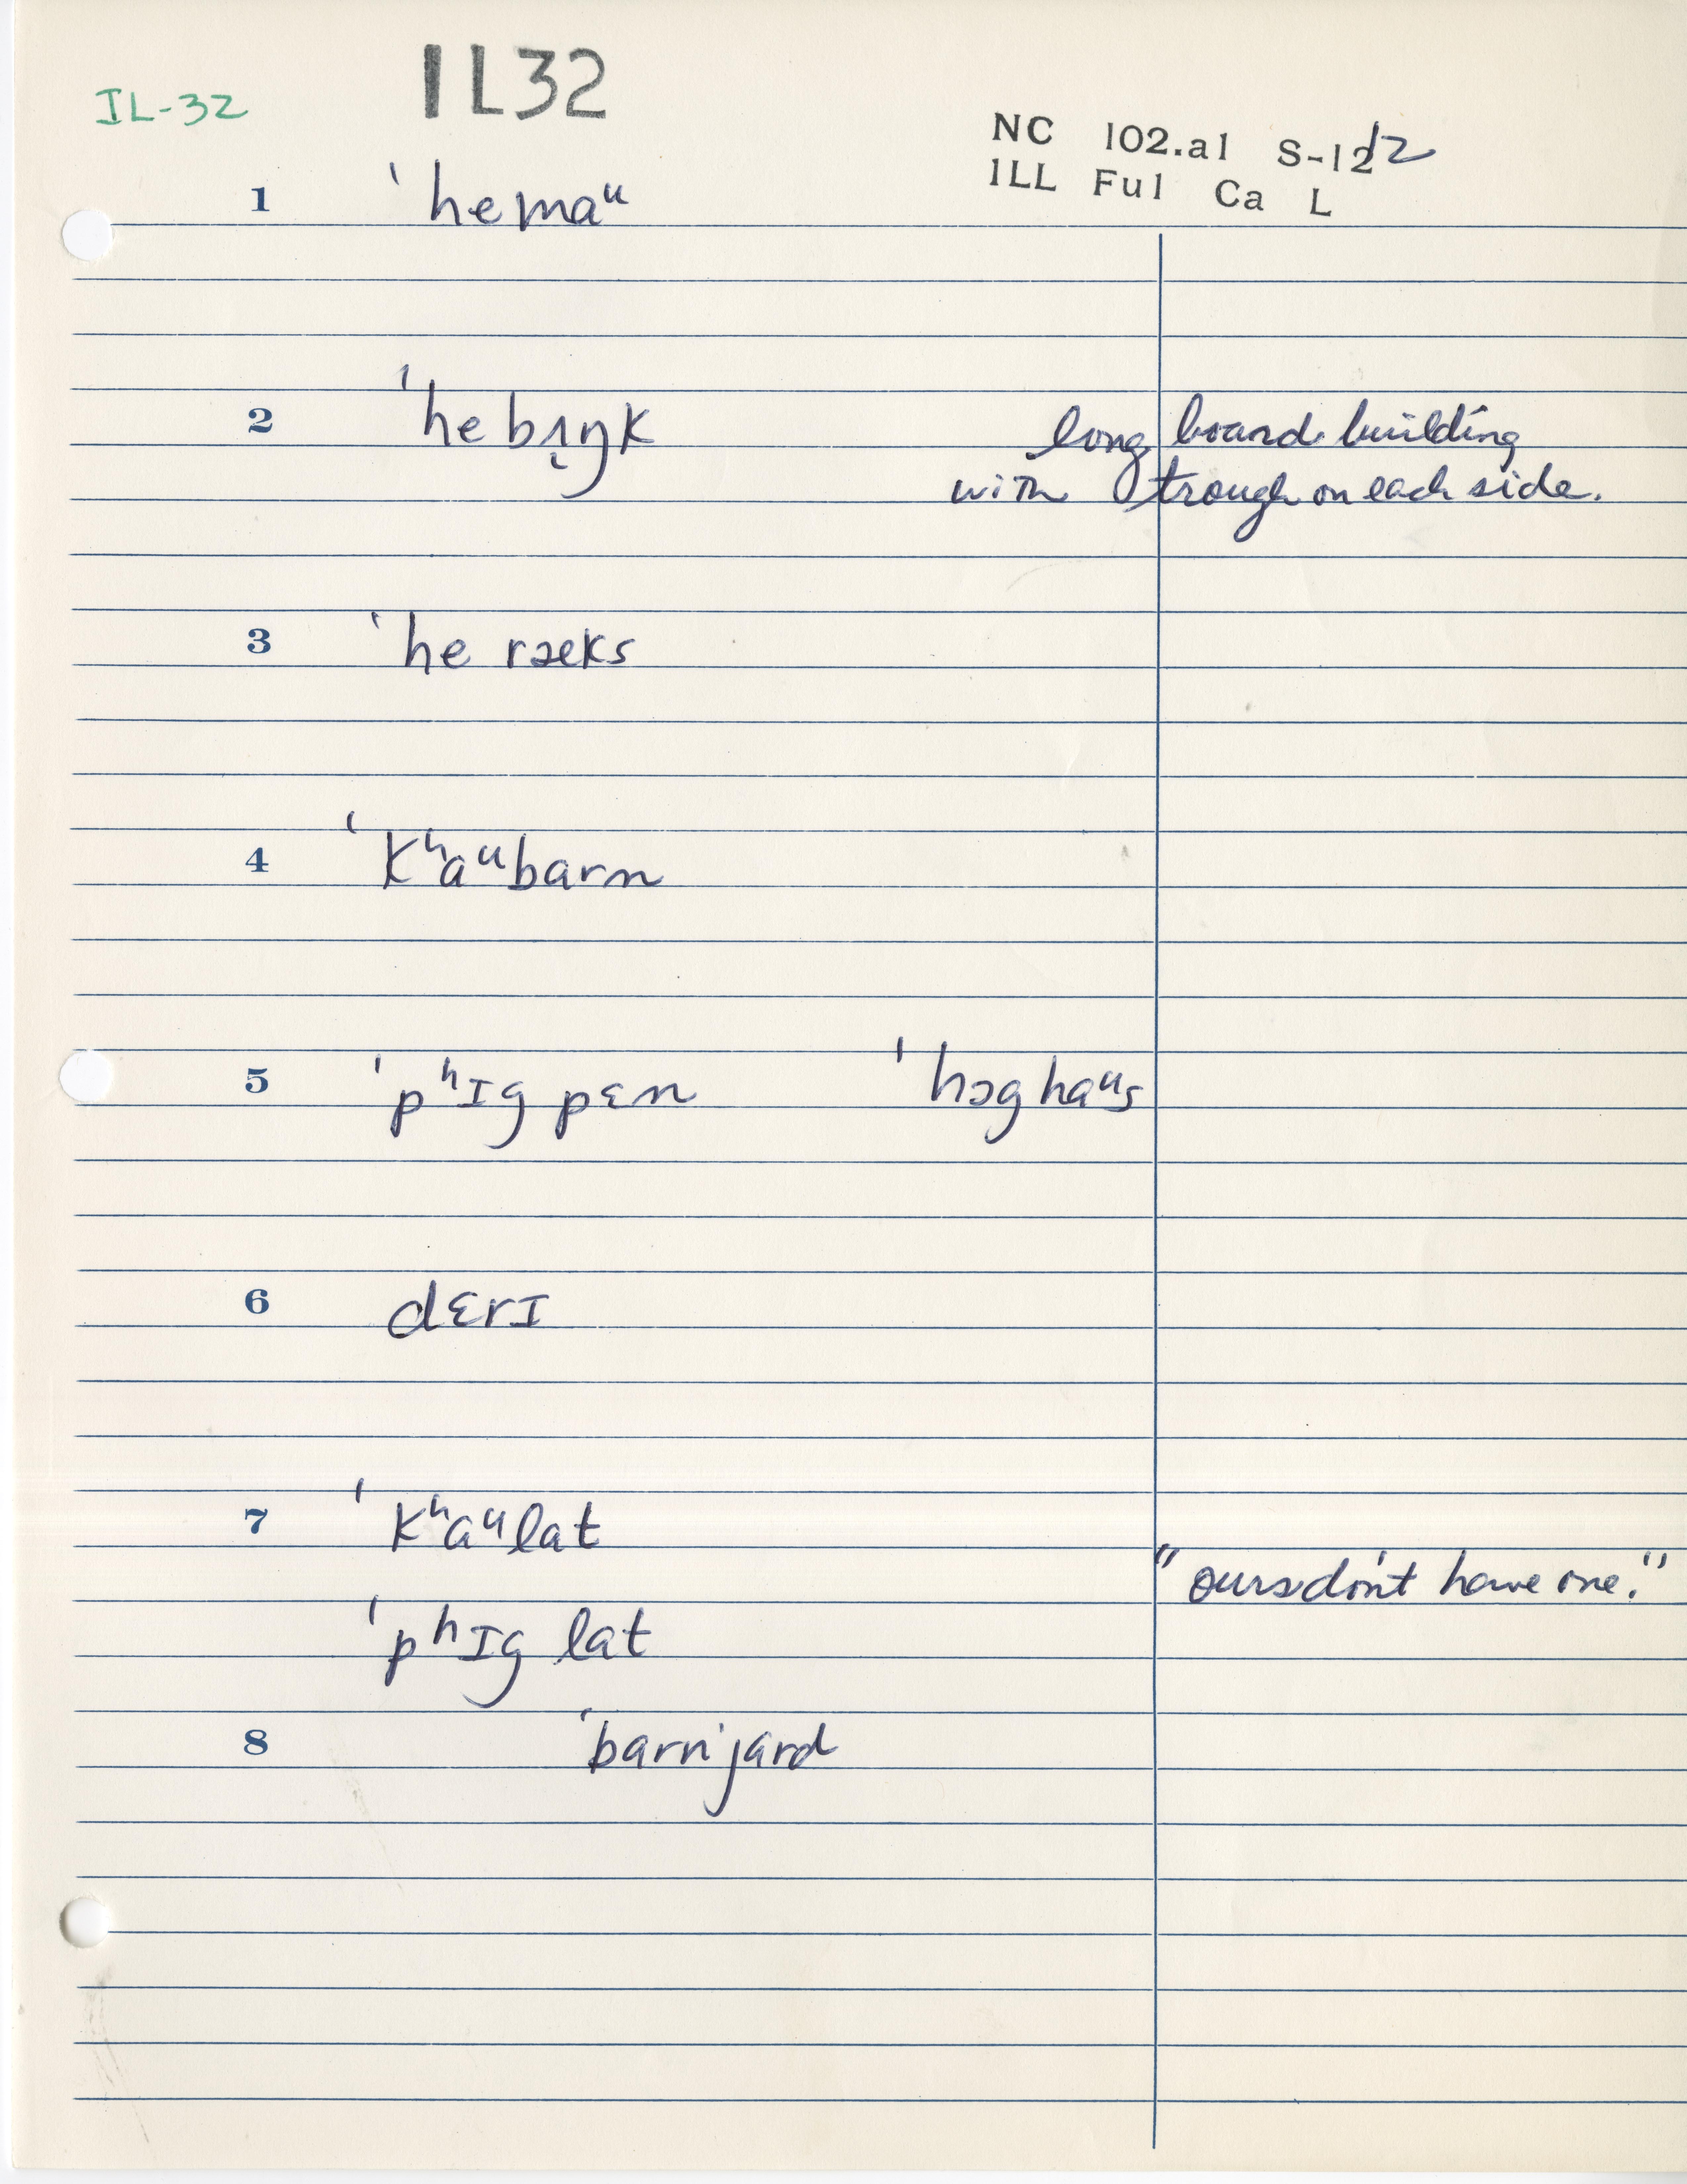 IL-32
IL32
NC 102.a1 S-12 12
ILL Ful Ca L
1 ˈhemaᵘ
2 ˈhe bɪŋk long board building
with trough on each side.
3 ˈhe ræks
4 ˈkʰaᵘbarn
5 ˈpʰɪg pɛn ˈhɔg haᵘs
6 dɛrɪ
7 ˈkʰaᵘlat
"ours don't have one."
ˈpʰɪg lat
8 ˈbarnˈjard